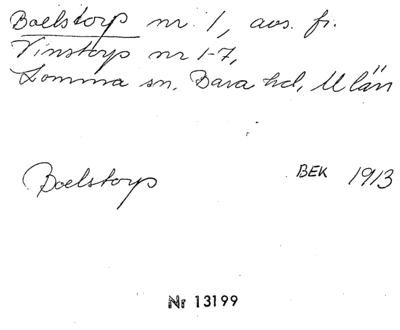 Boelstorp nr 1, avs. fr.
Vinstorp nr 1-7,
Lomma sn, Bara hd, M län
Boelstorp BEK 1913
Nr 13199